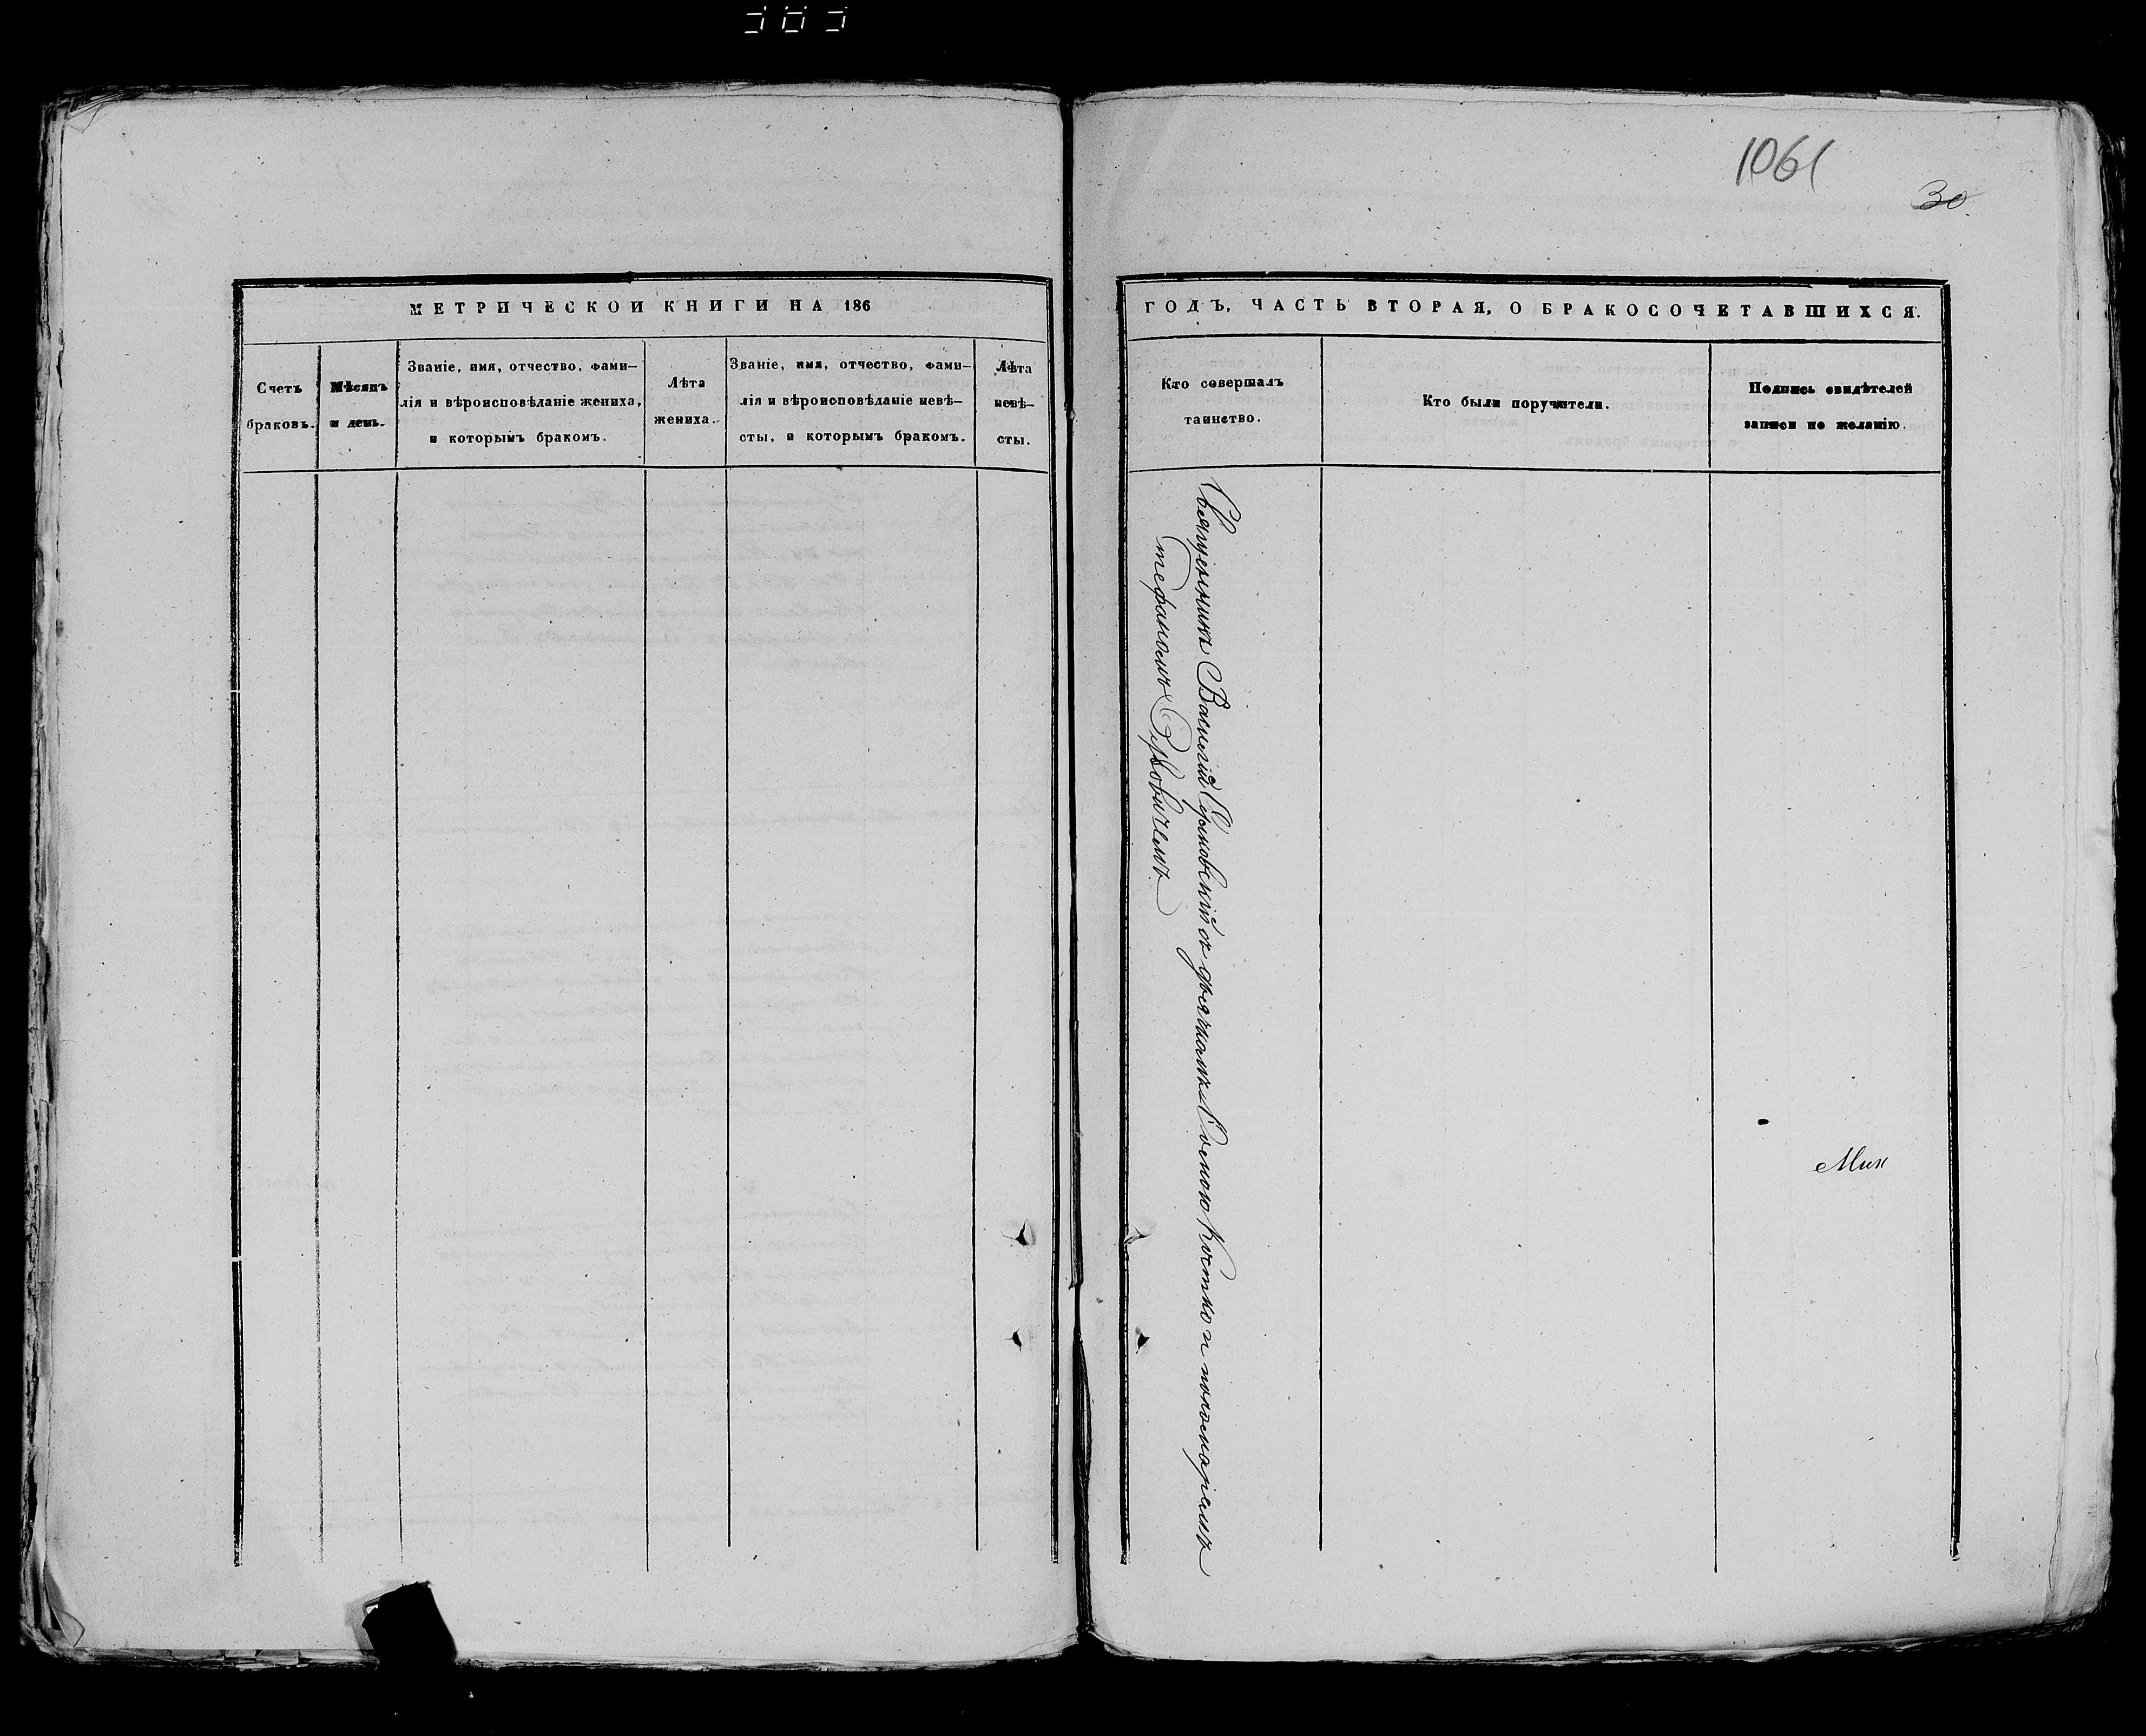 1061
30
МЕТРИЧЕСКОЙ КНИГИ НА 186
Счетъ
браковъ.
Мѣсяцъ
и день.
Званіе, имя, отчество, фами-
лія и вѣроисповѣданіе жениха,
и которымъ бракомъ.
Лѣта
жениха.
Званіе, имя, отчество, фами-
лія и вѣроисповѣданіе невѣ-
сты, и которымъ бракомъ.
Лѣта
невѣ-
сты.
ГОДЪ, ЧАСТЬ ВТОРАЯ, О БРАКОСОЧЕТАВШИХСЯ.
Кто совершалъ
таинство.
Кто были поручители.
Подпись свидѣтелей
записи по желанію.
Священникъ Василій съ дьячкомъ Костко и пономаремъ
Стефаномъ
Мик